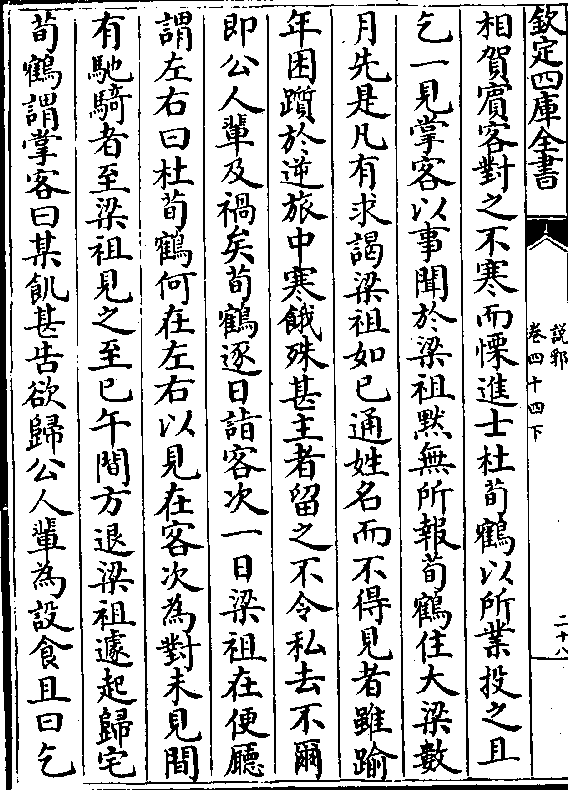 欽定四庫全書
說郛
卷四十四下
二十八
相賀賔客對之不寒而慄進士杜荀鶴以所業投之且
乞一見掌客以事聞於梁祖黙無所報荀鶴住大梁數
月先是凡有求謁梁祖如已通姓名而不得見者雖踰
年困躓於逆旅中寒餓殊甚主者留之不令私去不爾
即公人輩及禍矣荀鶴逐日詣客次一日梁祖在便廳
謂左右曰杜荀鶴何在左右以見在客次為對未見間
有馳騎者至梁祖見之至已午間方退梁祖遽起歸宅
荀鶴謂掌客曰某飢甚告欲歸公人輩為設食且曰乞